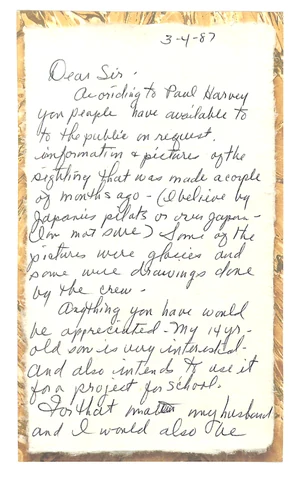 3-4-87
Dear Sir -
According to Paul Harvey
you people have available to
to the public on request.
information & pictures of the
sighting that was made a couple
of months ago - (I believe by
Japanies pilots or over Japan -
I'm not sure) Some of the
pictures were glocies and
some were drawings done
by the crew -
Anything you have would
be appreciated - My 14 yr -
old son is very interested -
and also intends to use it
for a project for school.
For that matter my husband
and I would also be